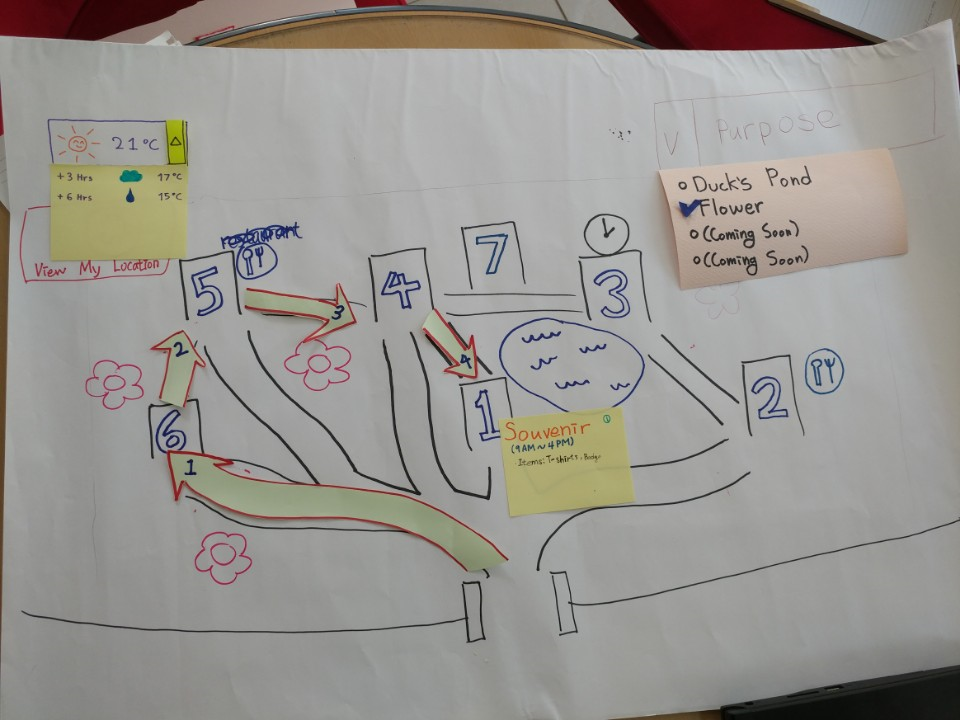 21°C
+3 Hrs 17°C
+6 Hrs 15°C
View My Location
V Purpose
Duck's Pond
Flower
(Coming Soon)
(Coming Soon)
restaurant
5
4
7
3
3
2
4
6
1
2
1
Souvenir
(9AM ~ 4PM)
Items: T-shirts, Badge